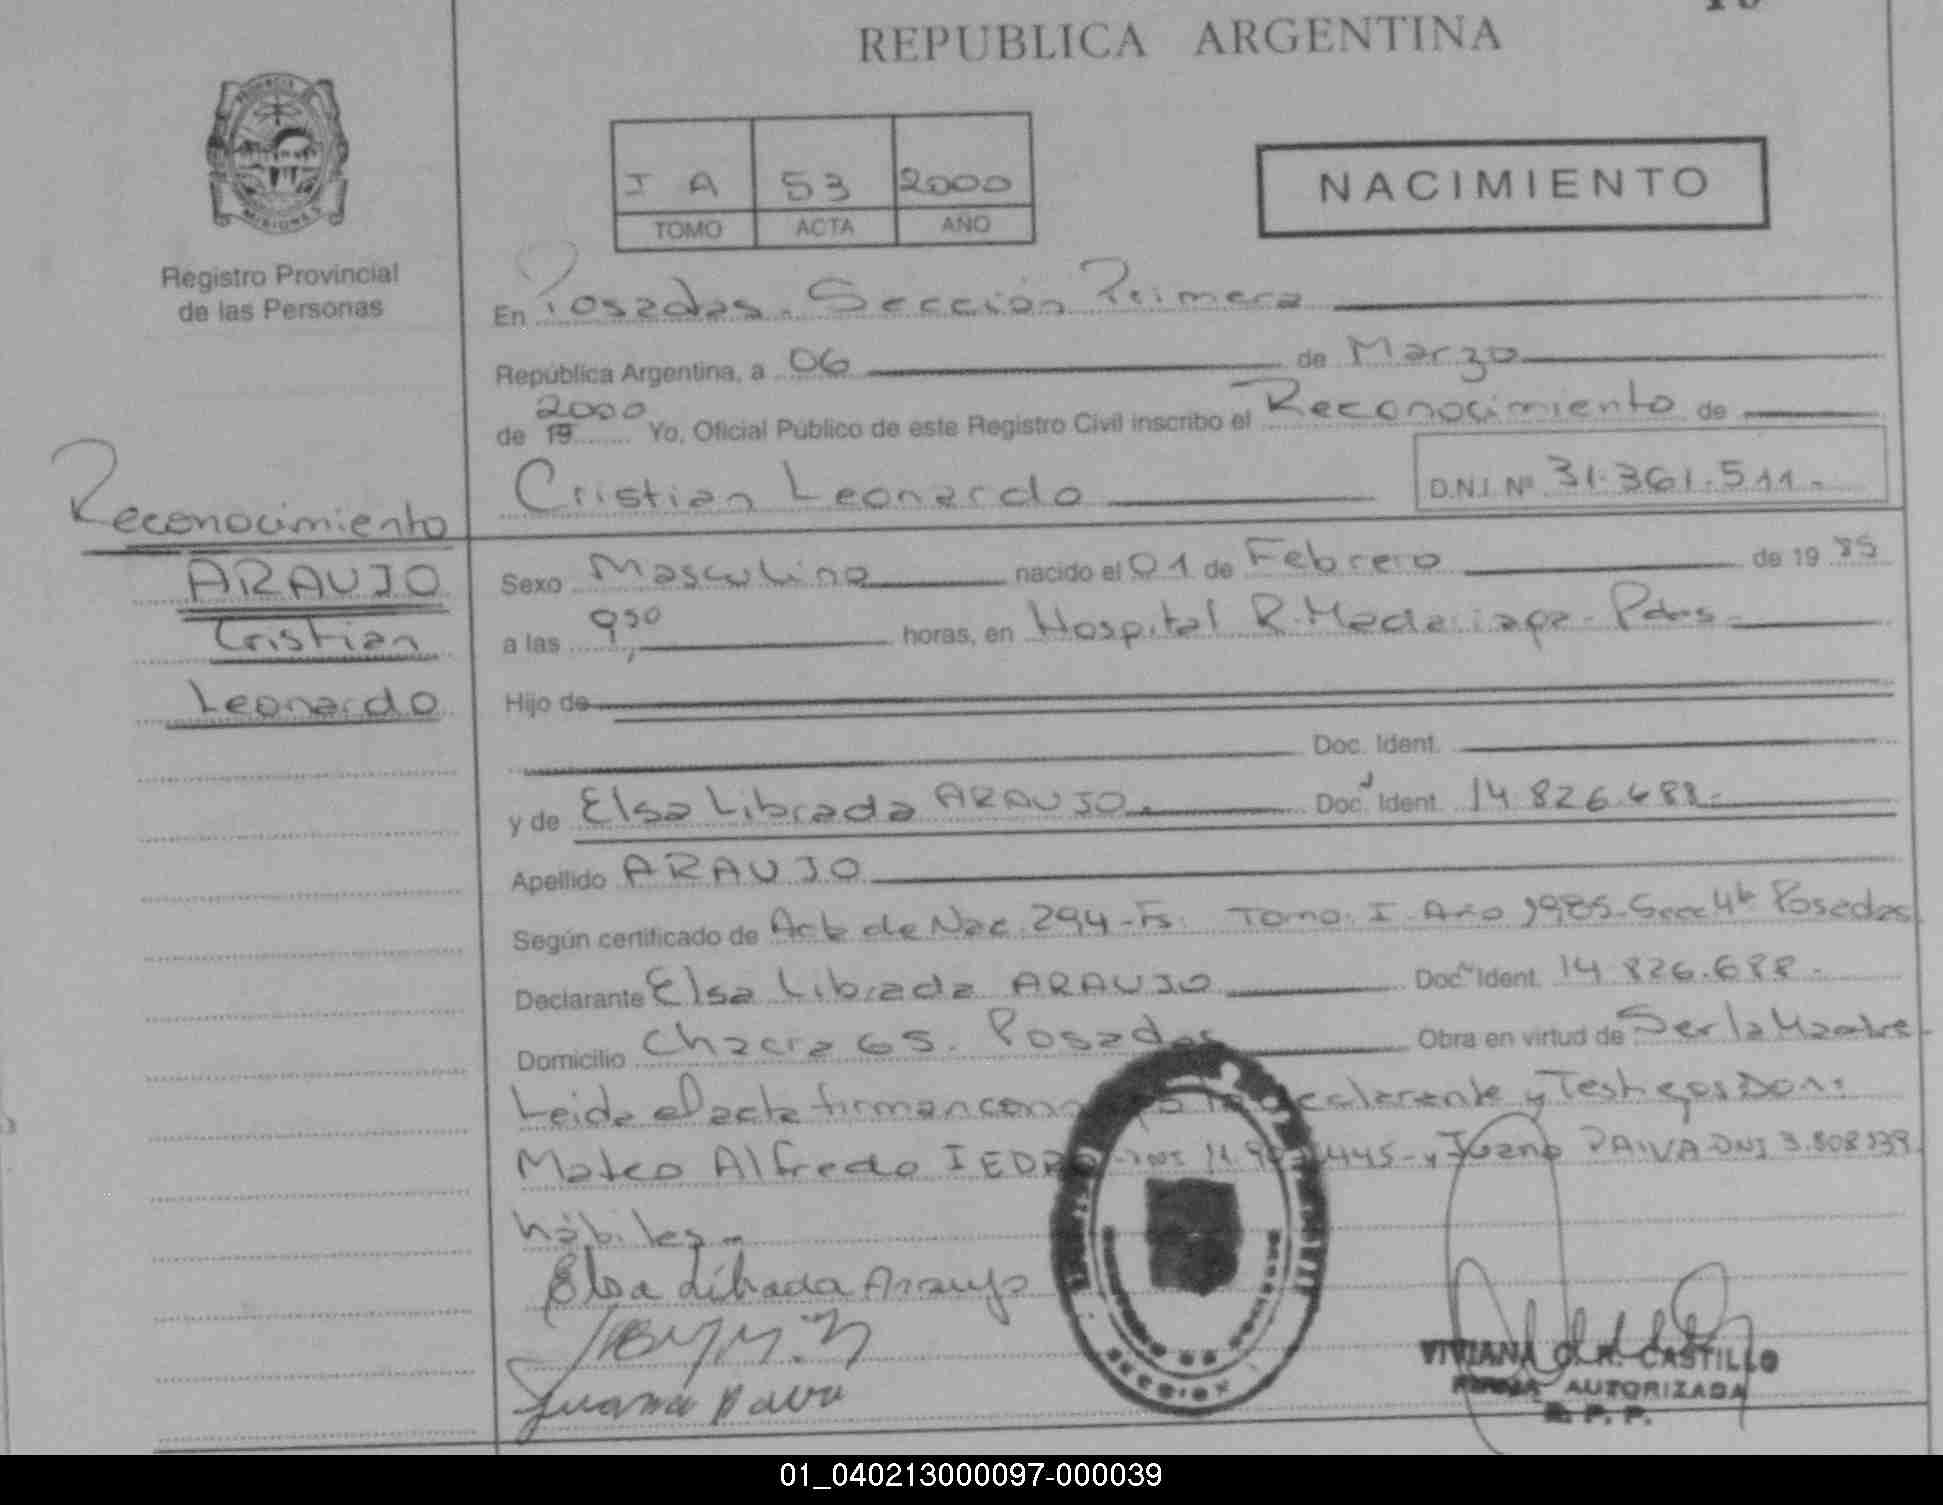 REPUBLICA ARGENTINA
I A 53 2000
TOMO ACTA AÑO
NACIMIENTO
Registro Provincial
de las Personas
En Posadas. Sección Primera
República Argentina, a 06 de Marzo
2000
de 19 Yo, Oficial Público de este Registro Civil inscribo el Reconocimiento de
Cristian Leonardo D.N.I. Nº 31.361.511.-
Reconocimiento
ARAUJO
Cristian
Leonardo
Sexo Masculino nacido el 01 de Febrero de 19 85
a las 9,30 horas, en Hospital R. Madariaga - Pdas
Hijo de
Doc. Ident.
y de Elsa Librada ARAUJO.- Doc. Ident. 14.826.688.-
Apellido ARAUJO
Según certificado de Acta de Nac. 294-Fs. Tomo. I Año 1985-Secc 4ta Posadas
Declarante Elsa Librada ARAUJO Doc. Ident. 14.826.688.-
Domicilio Chacra 65. Posadas Obra en virtud de Ser la Madre
Leida el acta firman declarante y Testigos Don:
Mateo Alfredo 445-y Juana PAIVA DNI 3.808.139
hábiles.-
Elsa Librada Araujo
Juana Paiva
VIVIANA CASTILLO
FIRMA AUTORIZADA
R. P. P.
01_040213000097-000039